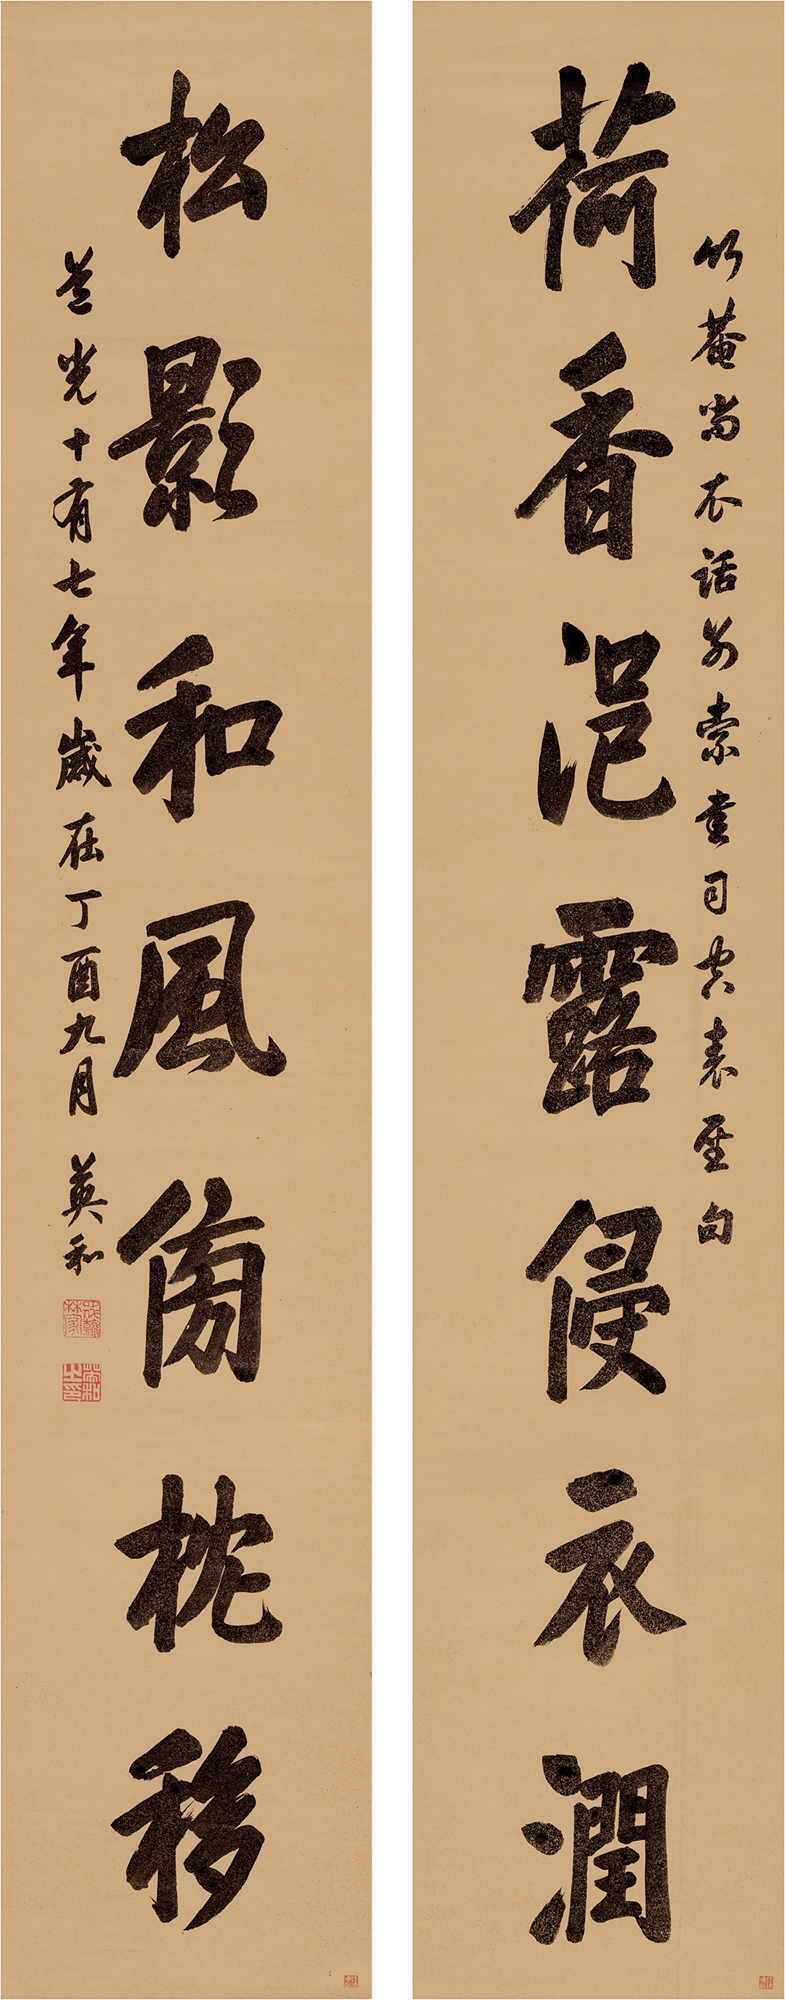 竹菴尚衣話別索書司空表聖句
荷香浥露侵衣潤
松影和風傍枕移
道光十有七年歲在丁酉九月 英和
英和之印